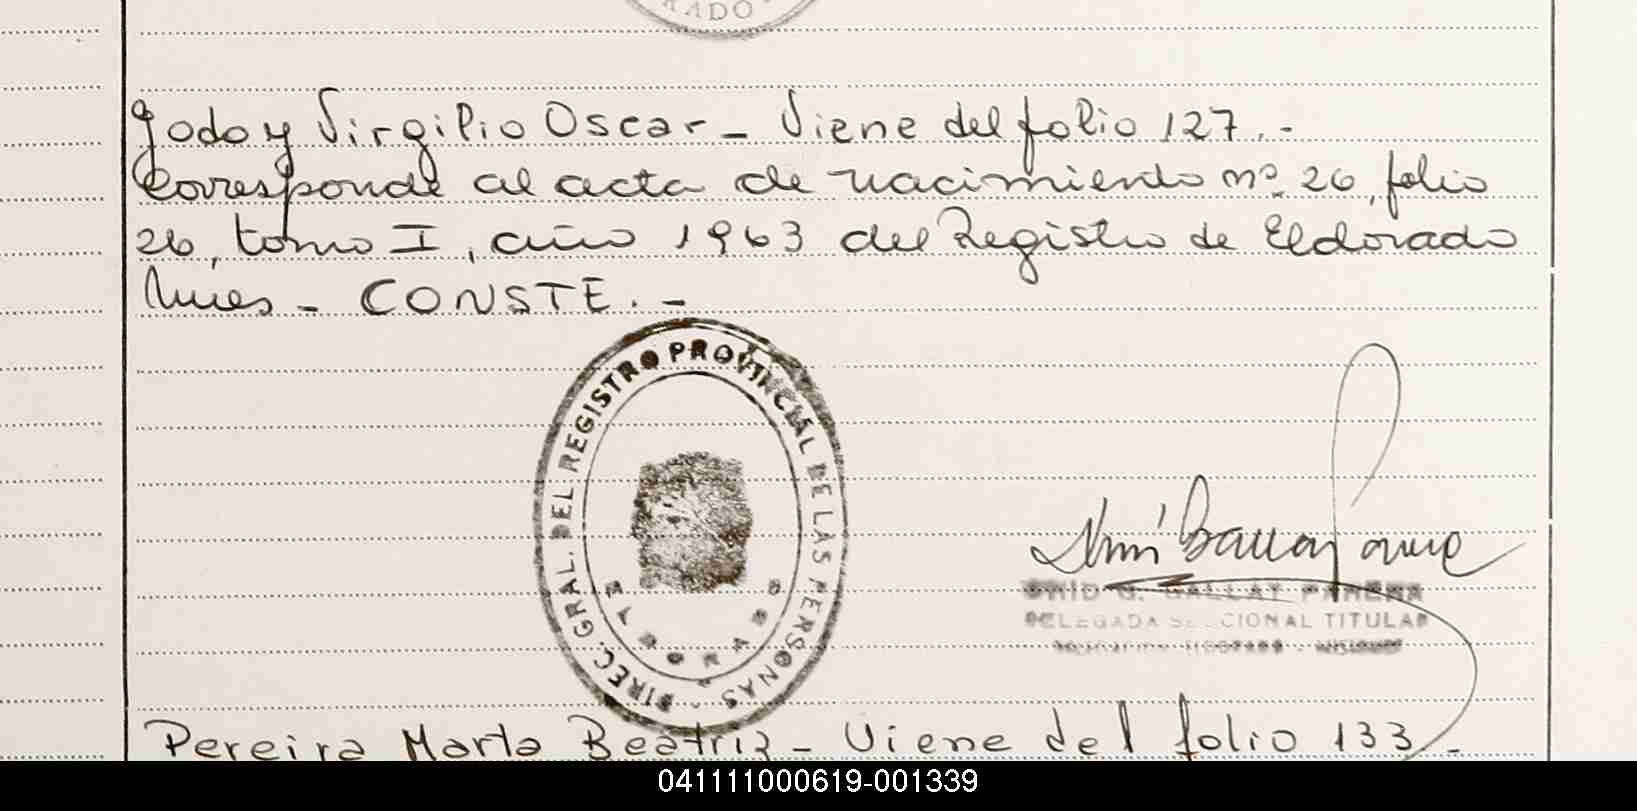 RADO
Godoy Virgilio Oscar - Viene del folio 127.-
Corresponde al acta de nacimiento nº 26, folio
26, tomo I, año 1963 del Registro de Eldorado
Mnes - CONSTE.-
DIREC. GRAL. DEL REGISTRO PROVINCIAL DE LAS PERSONAS
G. GALLAY
DELEGADA SECCIONAL TITULAR
Pereira Marta Beatriz - Viene del folio 133.-
041111000619-001339